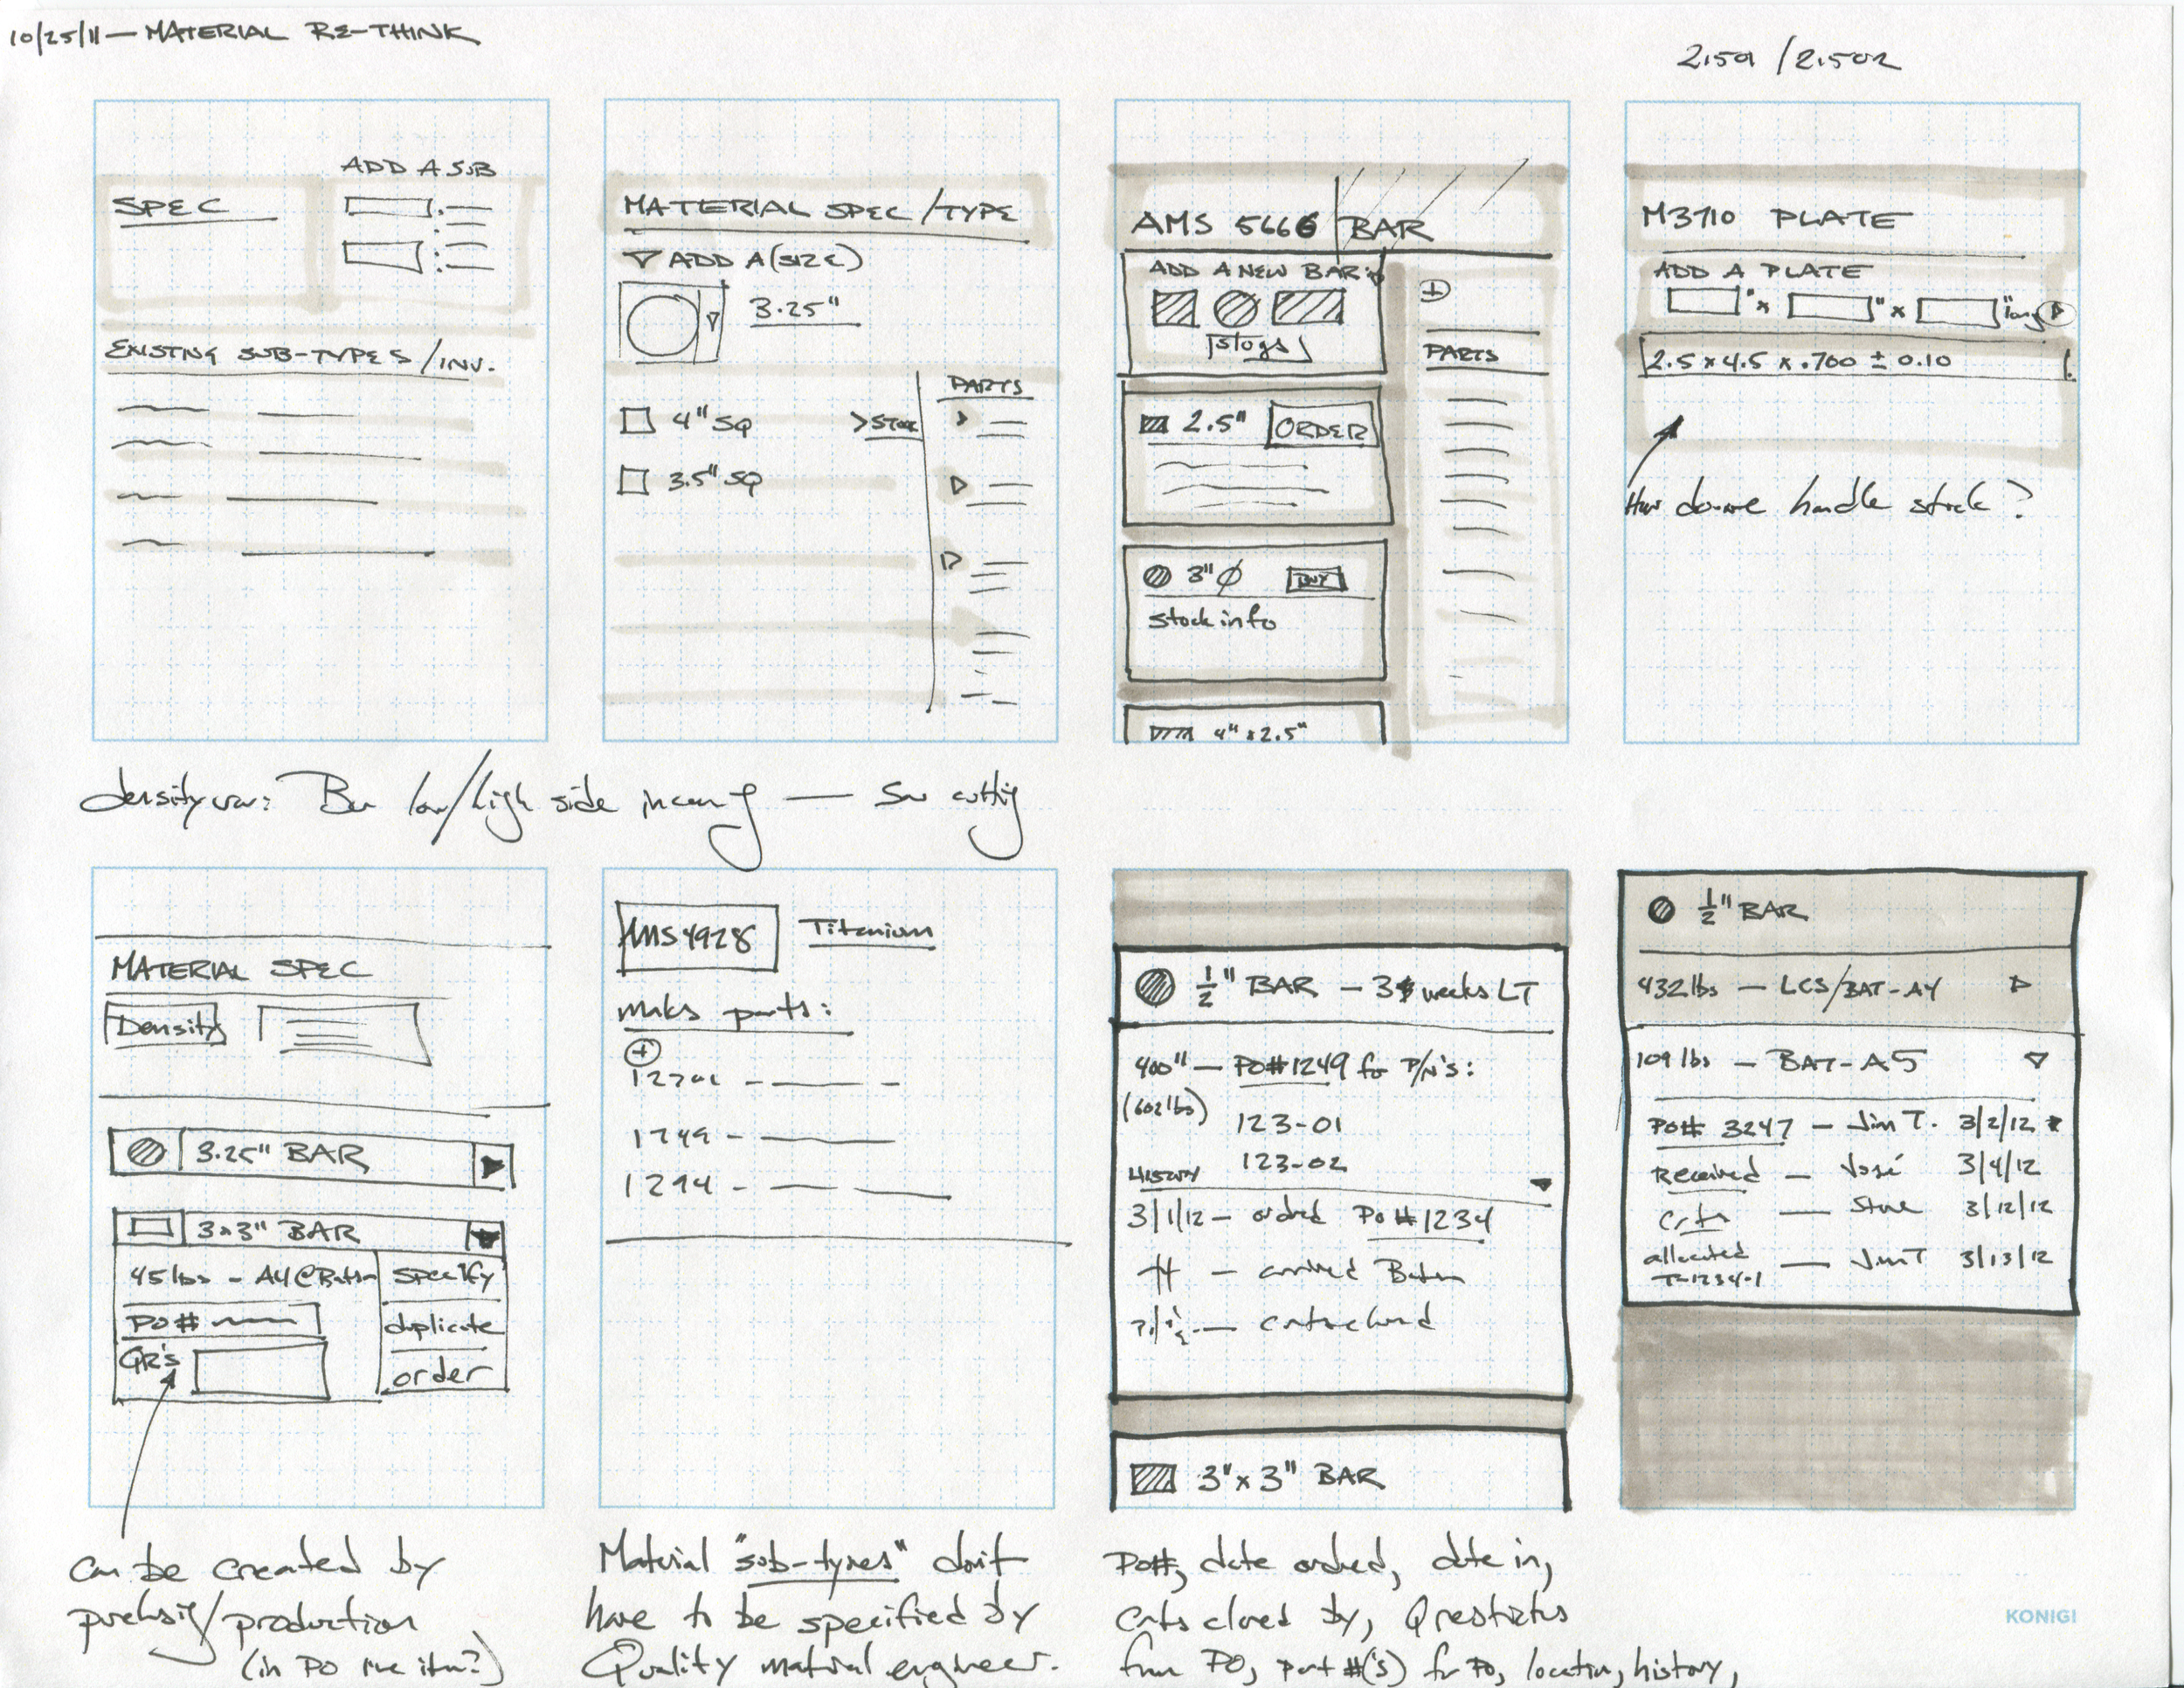 10/25/11 — MATERIAL RE-THINK
2.501 / 2.502
ADD A SUB
SPEC
EXISTING SUB-TYPES / INV.
MATERIAL SPEC / TYPE
▽ ADD A (SIZE)
3.25"
PARTS
4" SQ >STOCK
3.5" SQ
AMS 5666 BAR
ADD A NEW BAR:
slogs
PARTS
2.5" ORDER
3" Ø BUY
stock info
4" x 2.5"
M3710 PLATE
ADD A PLATE
" x " x " long
2.5 x 4.5 x .700 ± 0.10
How do we handle stock?
density var: Bar low/high side incoming — Saw cutting
MATERIAL SPEC
Density
3.25" BAR
3x3" BAR
45 lbs - A4@
specify
PO#
duplicate
QR's
order
can be created by
purchsig/production
(in PO line item?)
AMS4928 Titanium
maks parts:
1249 -
1294 -
Material "sub-types" don't
have to be specified by
Quality material engineer.
1/2" BAR — 3 weeks LT
400" — PO#1249 for P/N's:
(602 lbs)
123-01
123-02
HISTORY
3/1/12 — ordred PO #1234
— arrived
— certs closed
3" x 3" BAR
PO#, date ordred, date in,
Certs closed by, Q restrictns
from PO, part #('s) for PO, location, history,
1/2" BAR
432 lbs — LCS/BAT-A4
109 lbs — BAT-A5
PO# 3247 — Jim T. 3/2/12
Received — José 3/4/12
Certs — Steve 3/12/12
allocated — Jim T 3/13/12
T-1234-1
KONIGI